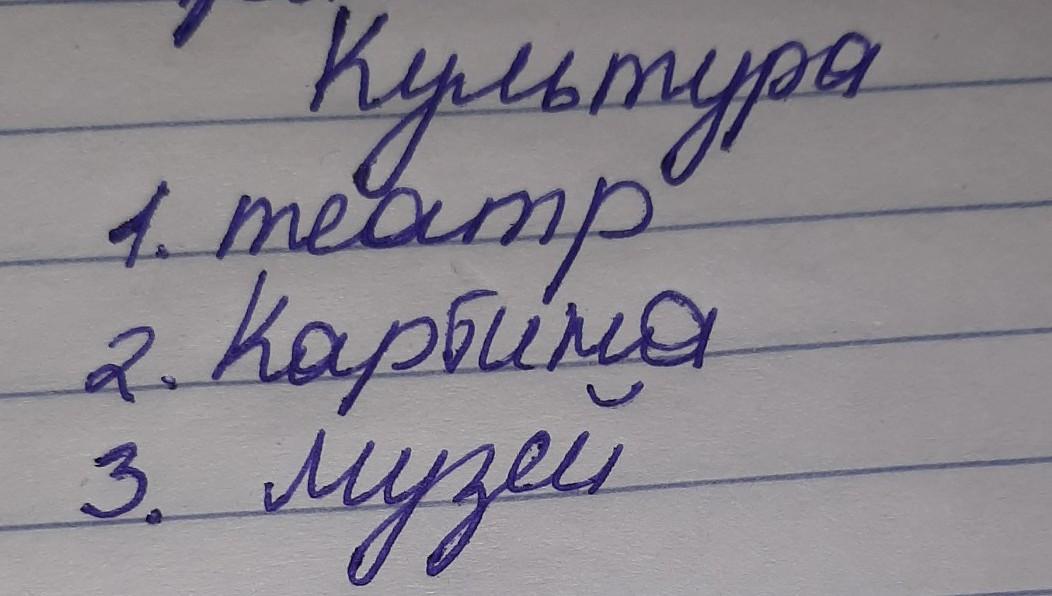 Культура
1. театр
2. Картина
3. музей